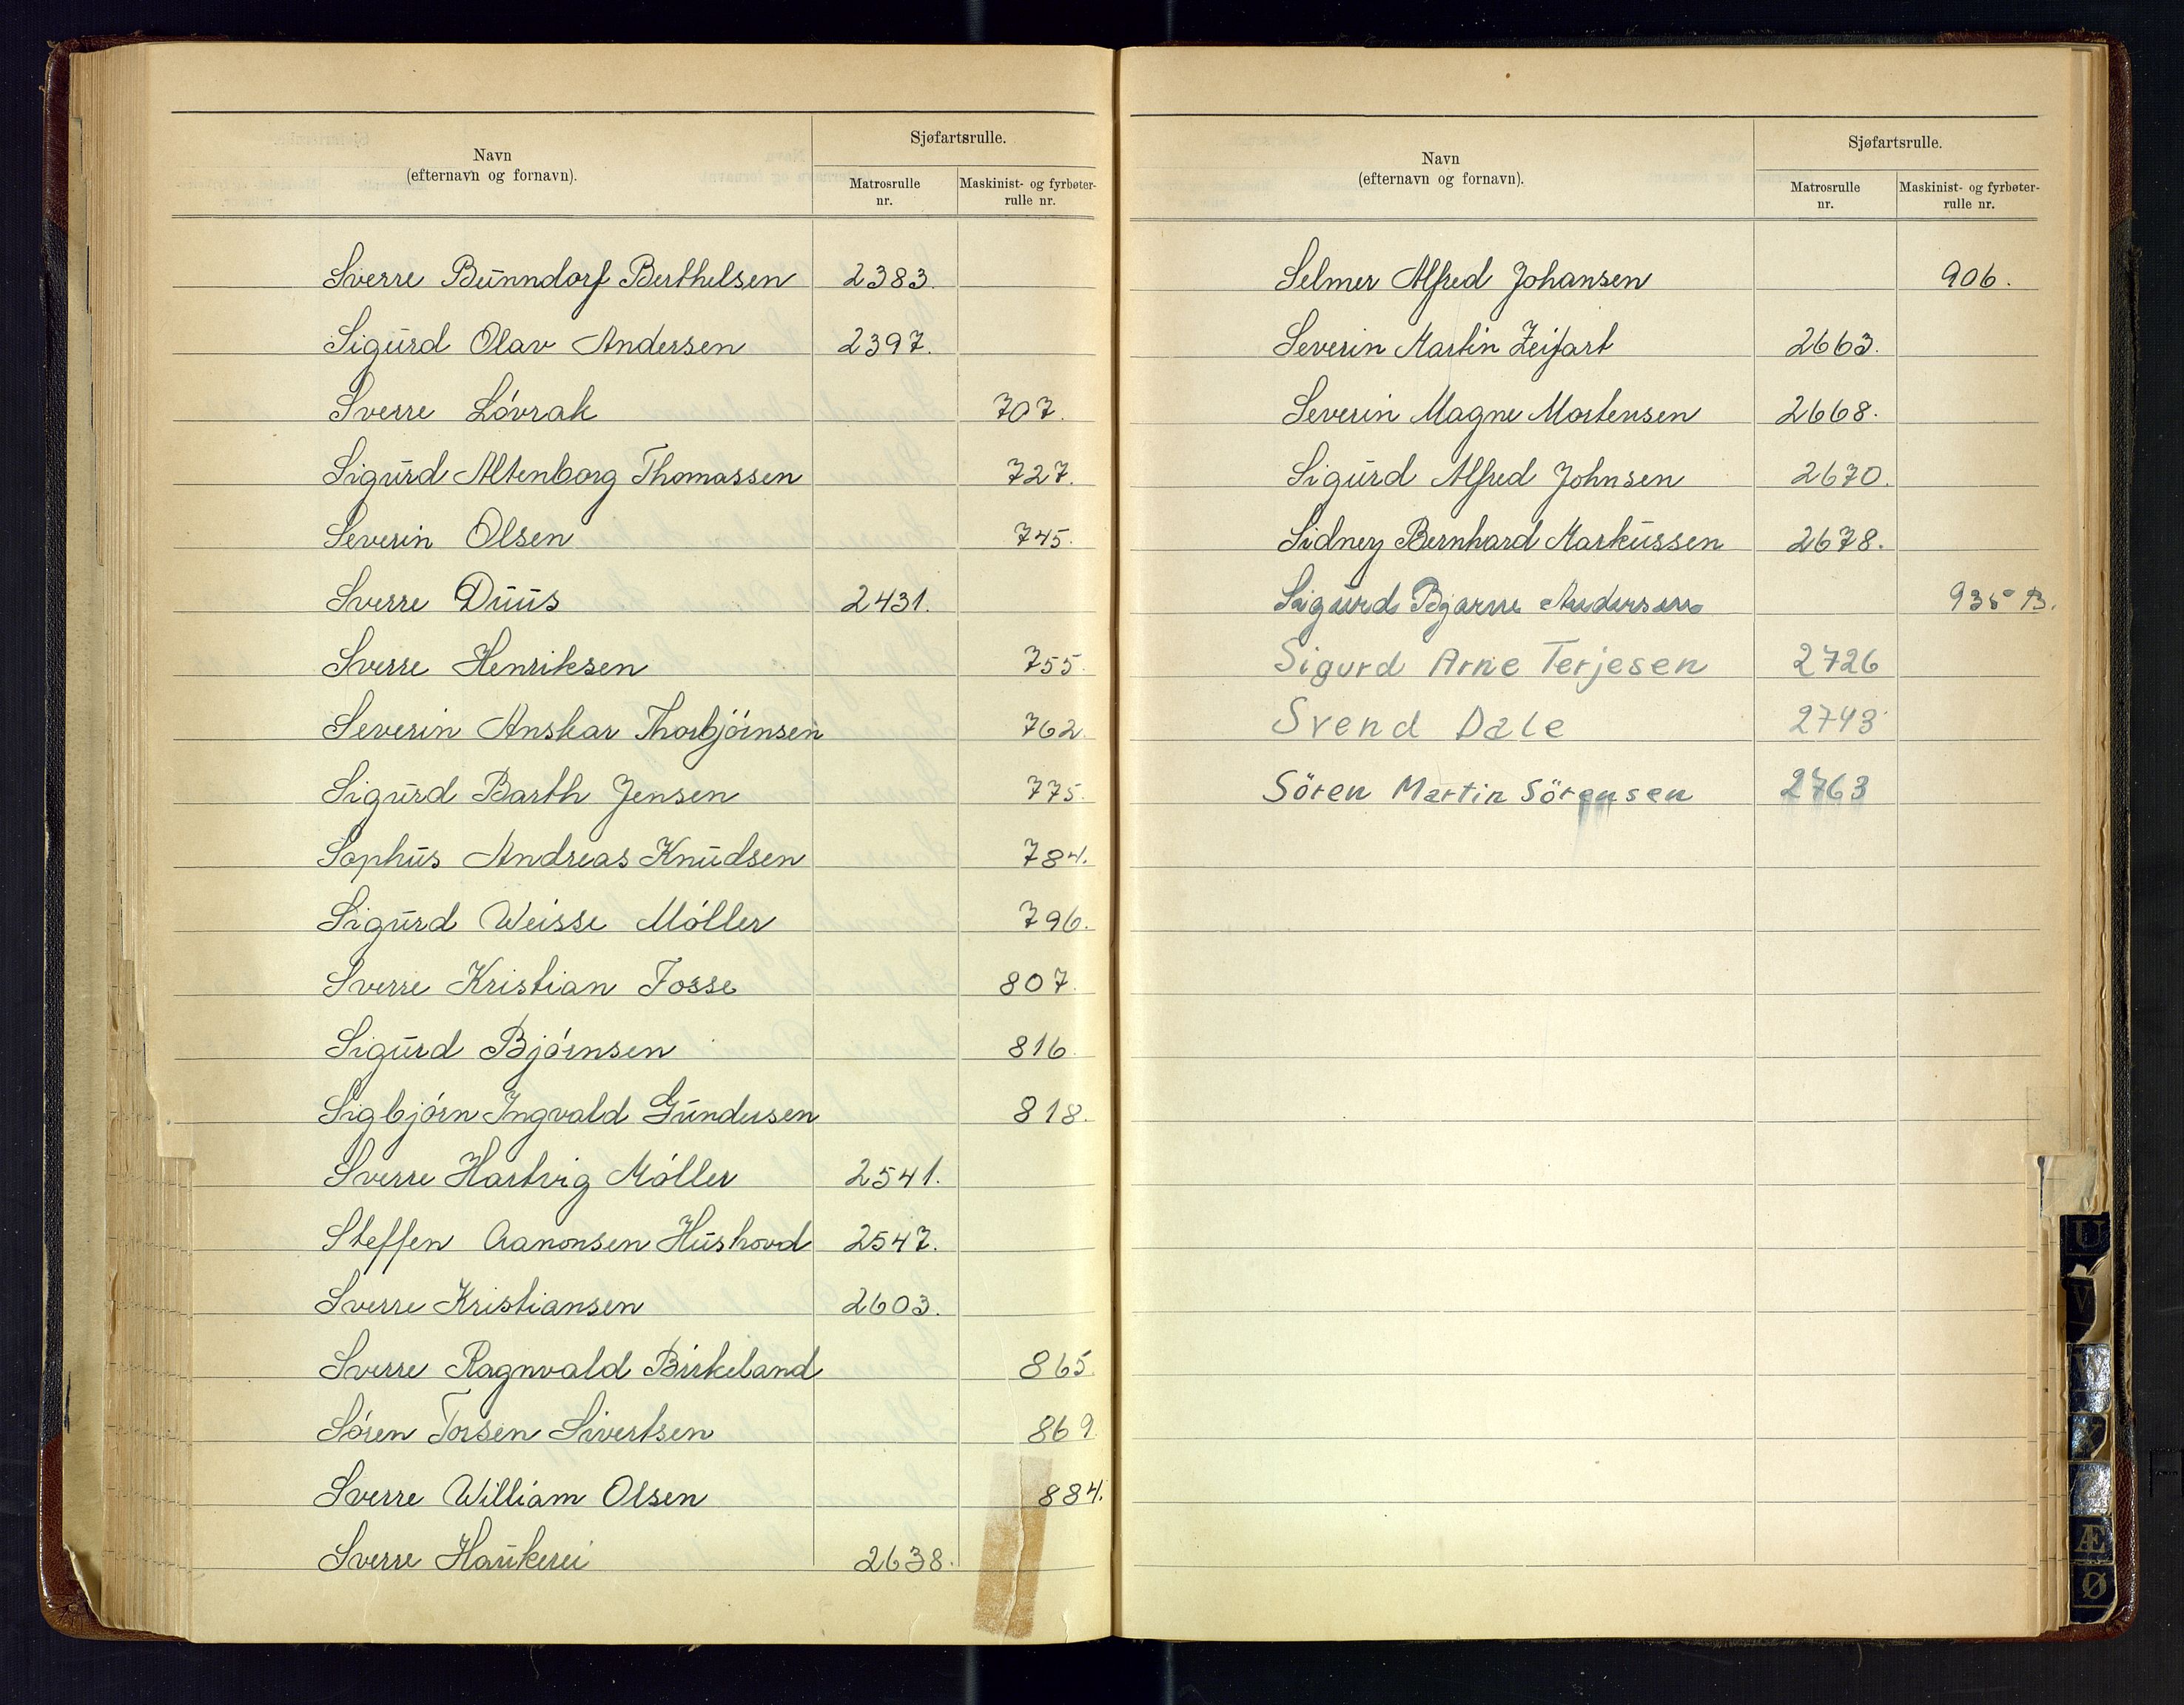 Navn
(efternavn og fornavn).
Sjøfartsrulle.
Matrosrulle nr.
Maskinist- og fyrbøter-rulle nr.
Sverre Bunndorf Berthelsen 2383.
Sigurd Olav Andersen 2397.
Sverre Lövrak 707.
Sigurd Altenborg Thomassen 727.
Severin Olsen 745.
Sverre Duus 2431.
Sverre Henriksen 755.
Severin Anskar Thorbjörnsen 762.
Sigurd Barth Jensen 775.
Sophus Andreas Knudsen 784.
Sigurd Weisse Möller 796.
Sverre Kristian Fosse 807.
Sigurd Björnsen 816.
Sigbjörn Ingvald Gundersen 818.
Sverre Hartvig Möller 2541.
Steffen Aanonsen Hushovd 2547.
Sverre Kristiansen 2603.
Sverre Ragnvald Birkeland 865.
Sören Torsen Sivertsen 869.
Sverre William Olsen 884.
Sverre Haukerei 2638.
Navn
(efternavn og fornavn).
Sjøfartsrulle.
Matrosrulle nr.
Maskinist- og fyrbøter-rulle nr.
Selmer Alfred Johansen 906.
Severin Martin Zeifart 2663.
Severin Magne Mortensen 2668.
Sigurd Alfred Johnsen 2670.
Sidney Bernhard Markussen 2678.
Sigurd Bjarne Andersen 935 B.
Sigurd Arne Terjesen 2726
Svend Dale 2743
Sören Martin Sörensen 2763
U
V
W
X
Z
Æ
Ø